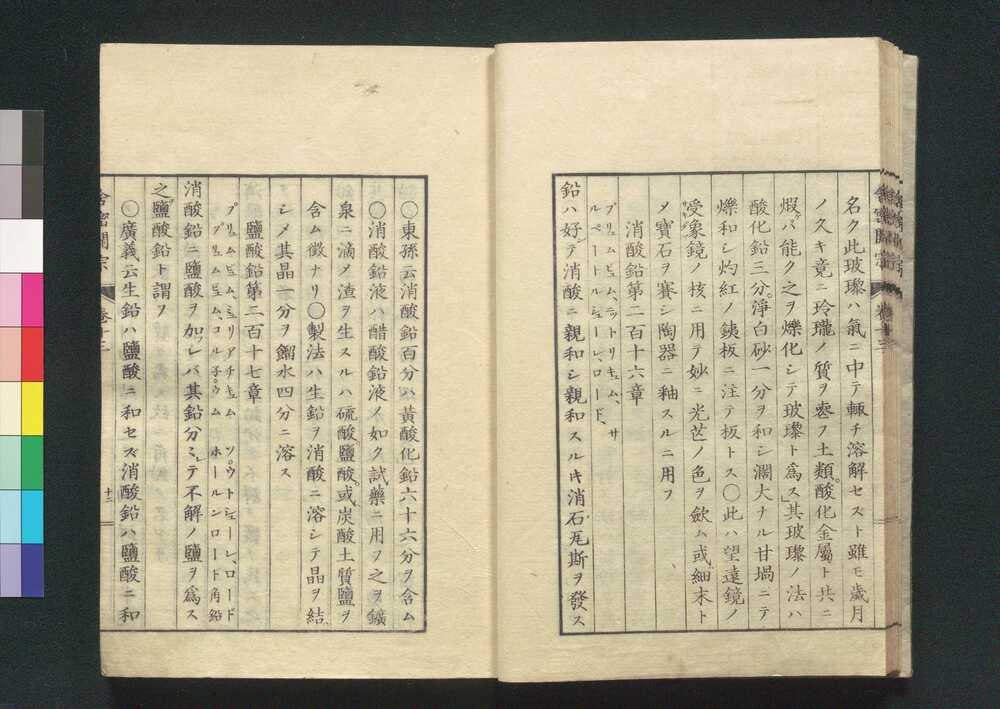 名ク此玻瓈ハ氣ニ中テ輙チ溶解セスト雖モ歲月
ノスキ竟ニ玲瓏ノ質ヲ壱フ土類酸化金屬ト共ニ
煆バ能ク之ヲ爍化シテ玻瓈ト爲ス其玻瓈ノ法ハ
酸化鉛三分淨白砂一分ヲ和シ濶大ナル甘堝ニテ
爍和シ灼紅ノ銕板ニ注テ板トス○此ハ望遠鏡ノ
受象鏡ノ核ニ用テ妙ニ光芒ノ色ヲ歛ム或細末ト
メ寶石ヲ賽シ陶器ニ釉スルニ用フ
消酸鉛第二百十六章
プリュムビュム、ニットリキュム、サ
ルペートルシューレ、ロード、
鉛ハ好テ消酸ニ親和シ親和スルキ消石瓦斯ヲ發ス
舎密開宗 卷十三
○東孫云消酸鉛百分ハ黃酸化鉛六十六分ヲ含ム
○消酸鉛液ハ醋酸鉛液ノ如ク試藥ニ用フ之ヲ鑛
泉ニ滴メ渣ヲ生スルハ硫酸鹽酸或炭酸土質鹽ヲ
含ム徵ナリ○製法ハ生鉛ヲ消酸ニ溶シテ晶ヲ結
シメ其晶一分ヲ餾水四分ニ溶ス
鹽酸鉛第二百十七章
プリュムビュム、ミュリアチキュム ソウトシューレ、ロード
プリュムビュム、コル子ウム ホールンロート角鉛
消酸鉛ニ鹽酸ヲ加レバ其鉛分ミテ不解ノ鹽ヲ爲ス
之鹽酸鉛ト謂フ
○廣義云生鉛ハ鹽酸ニ和セズ消酸鉛ハ鹽酸ニ和
舎密開宗 卷十三 十二